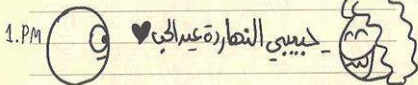 1.PM
_ حبيبي النهاردة عيد الحب ♥